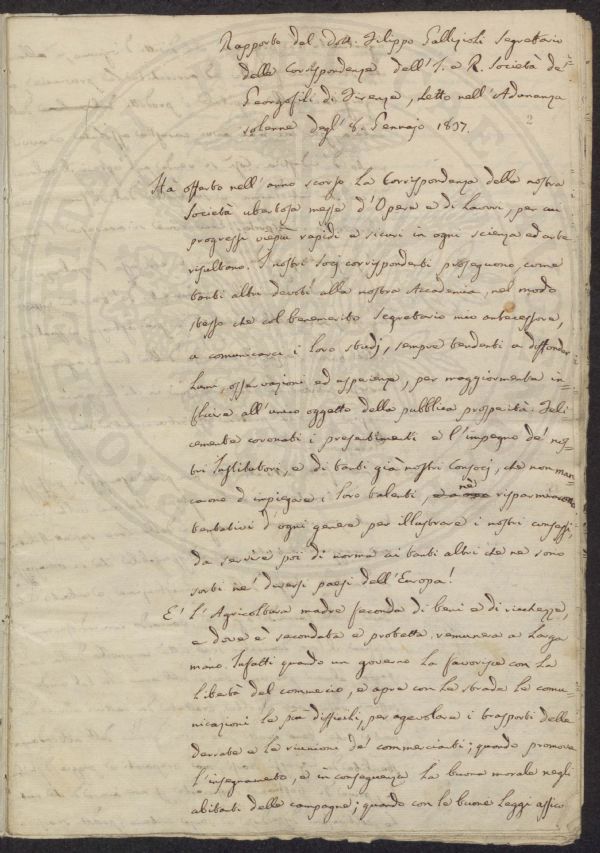 Rapporto del dott. Filippo Gallizioli Segretario
della Corrispondenza dell'I. e R. Società de'
Georgofili di Firenze, Letto nell'Adunanza
solenne degl'8. Gennajo 1837.
2
Ha offerto nell'anno scorso la Corrispondenza della nostra
Società ubertosa messe d'Opere e di Lavori, per cui
progressi viepiù rapidi e sicuri in ogni scienza ed arte
risultono. I nostri socj corrispondenti proseguono, come
tanti altri devoti alla nostra Accademia, nel modo
stesso che col benemerito Segretario mio antecessore,
a comunicarci i loro studj, sempre tendenti a diffonder
lumi, osservazioni ed esperienze, per maggiormente in=
fluire all'unico oggetto della pubblica prosperità. Feli=
cemente coronati i presentimenti e l'impegno de' nos=
tri Institutori, e di tanti già nostri Consocj, che non man=
carono d'impiegare i loro talenti, nè risparmiarono
tentativi d'ogni genere per illustrare i nostri consessi,
da servire poi di norma ai tanti altri che ne sono
sorti ne' diversi paesi dell'Europa!
E' l'Agricoltura madre feconda di beni e di ricchezze,
e dove è secondata e protetta, remunera a larga
mano. Infatti quando un governo la favorisce con la
libertà del commercio, e apre con le strade le comu=
nicazioni le più difficili, per agevolare i trasporti delle
derrate e le riunioni de' commercianti; quando promove
l'insegnamento, e in conseguenza la buona morale negli
abitanti delle campagne; quando con le buone leggi assicu